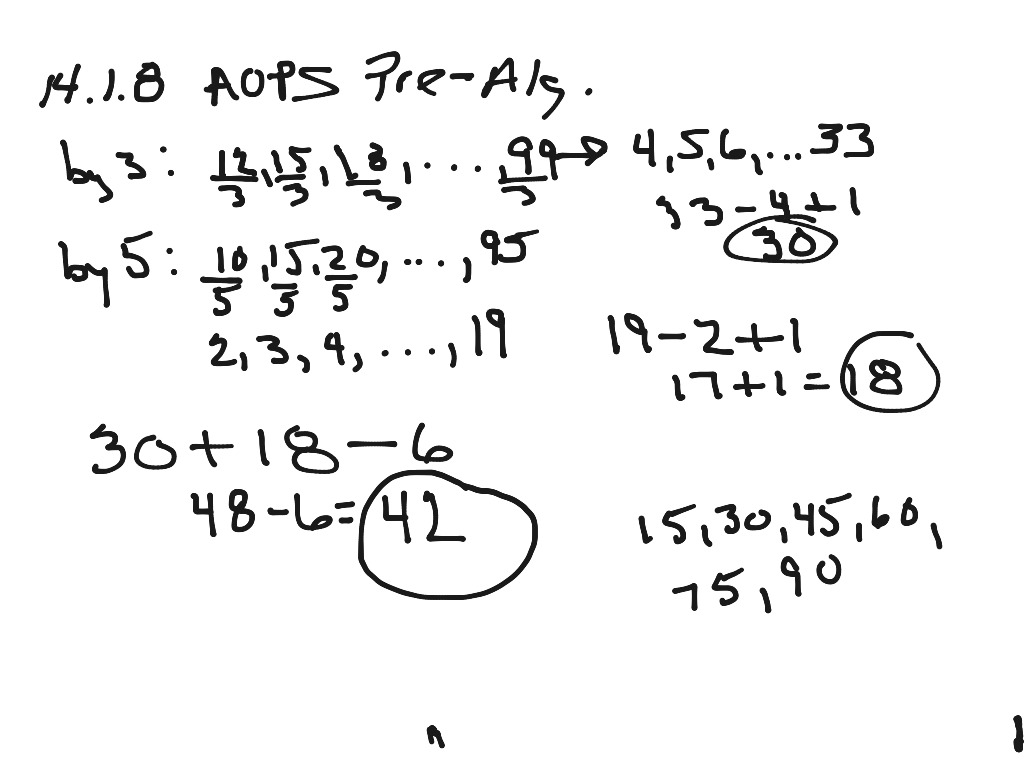 14.1.8 AOPS Pre-Alg.
by 3: 12/3, 15/3, 18/3, ..., 99/3 → 4, 5, 6, ... 33
33 - 4 + 1
30
by 5: 10/5, 15/5, 20/5, ..., 95
2, 3, 4, ..., 19
19 - 2 + 1
17 + 1 = 18
30 + 18 - 6
48 - 6 = 42
15, 30, 45, 60,
75, 90